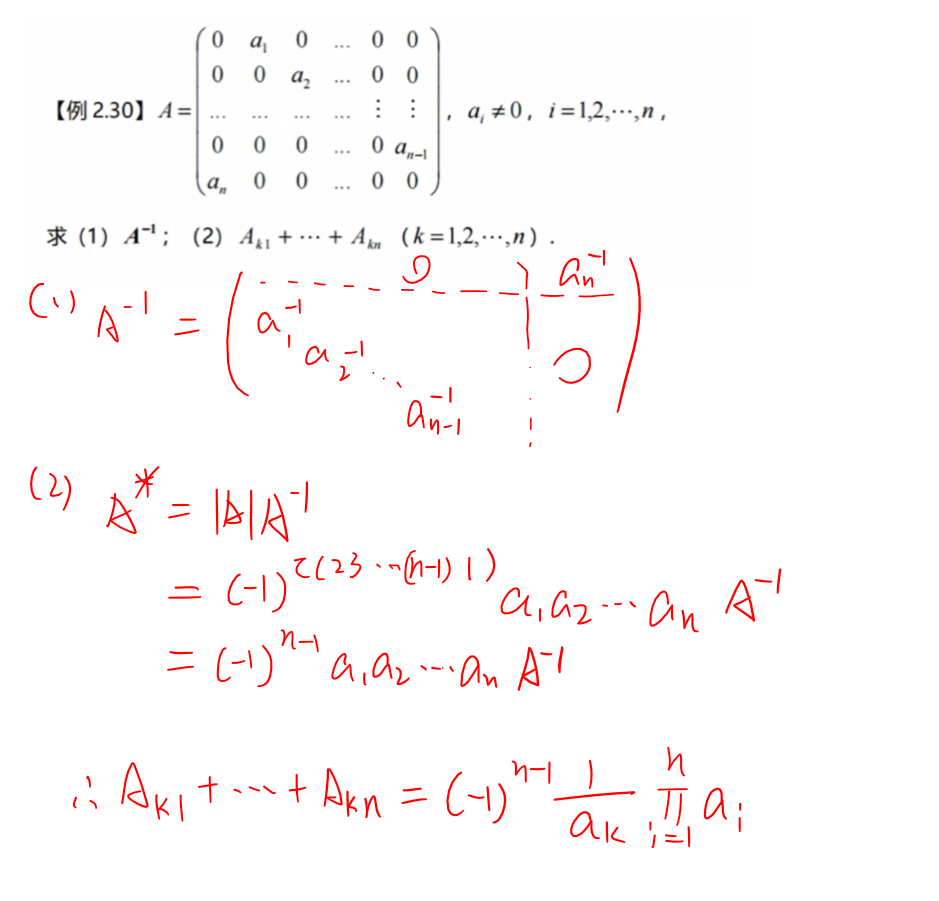 【例 2.30】 A = ( 0 a₁ 0 ... 0 0
0 0 a₂ ... 0 0
... ... ... ... ⋮ ⋮
0 0 0 ... 0 aₙ₋₁
aₙ 0 0 ... 0 0 ) , aᵢ ≠ 0, i = 1,2,⋯,n ,
求（1）A⁻¹；（2）Aₖ₁ + ⋯ + Aₖₙ （k = 1,2,⋯,n）.
(1) A⁻¹ = ( 0 aₙ⁻¹
a₁⁻¹
a₂⁻¹ ⋱ 0
aₙ₋₁⁻¹ )
(2) A* = |A|A⁻¹
= (-1)^τ(23⋯(n-1)1) a₁a₂⋯aₙ A⁻¹
= (-1)^n-1 a₁a₂⋯aₙ A⁻¹
∴ Aₖ₁ + ⋯ + Aₖₙ = (-1)^n-1 1/aₖ ∏ᵢ₌₁ⁿ aᵢ